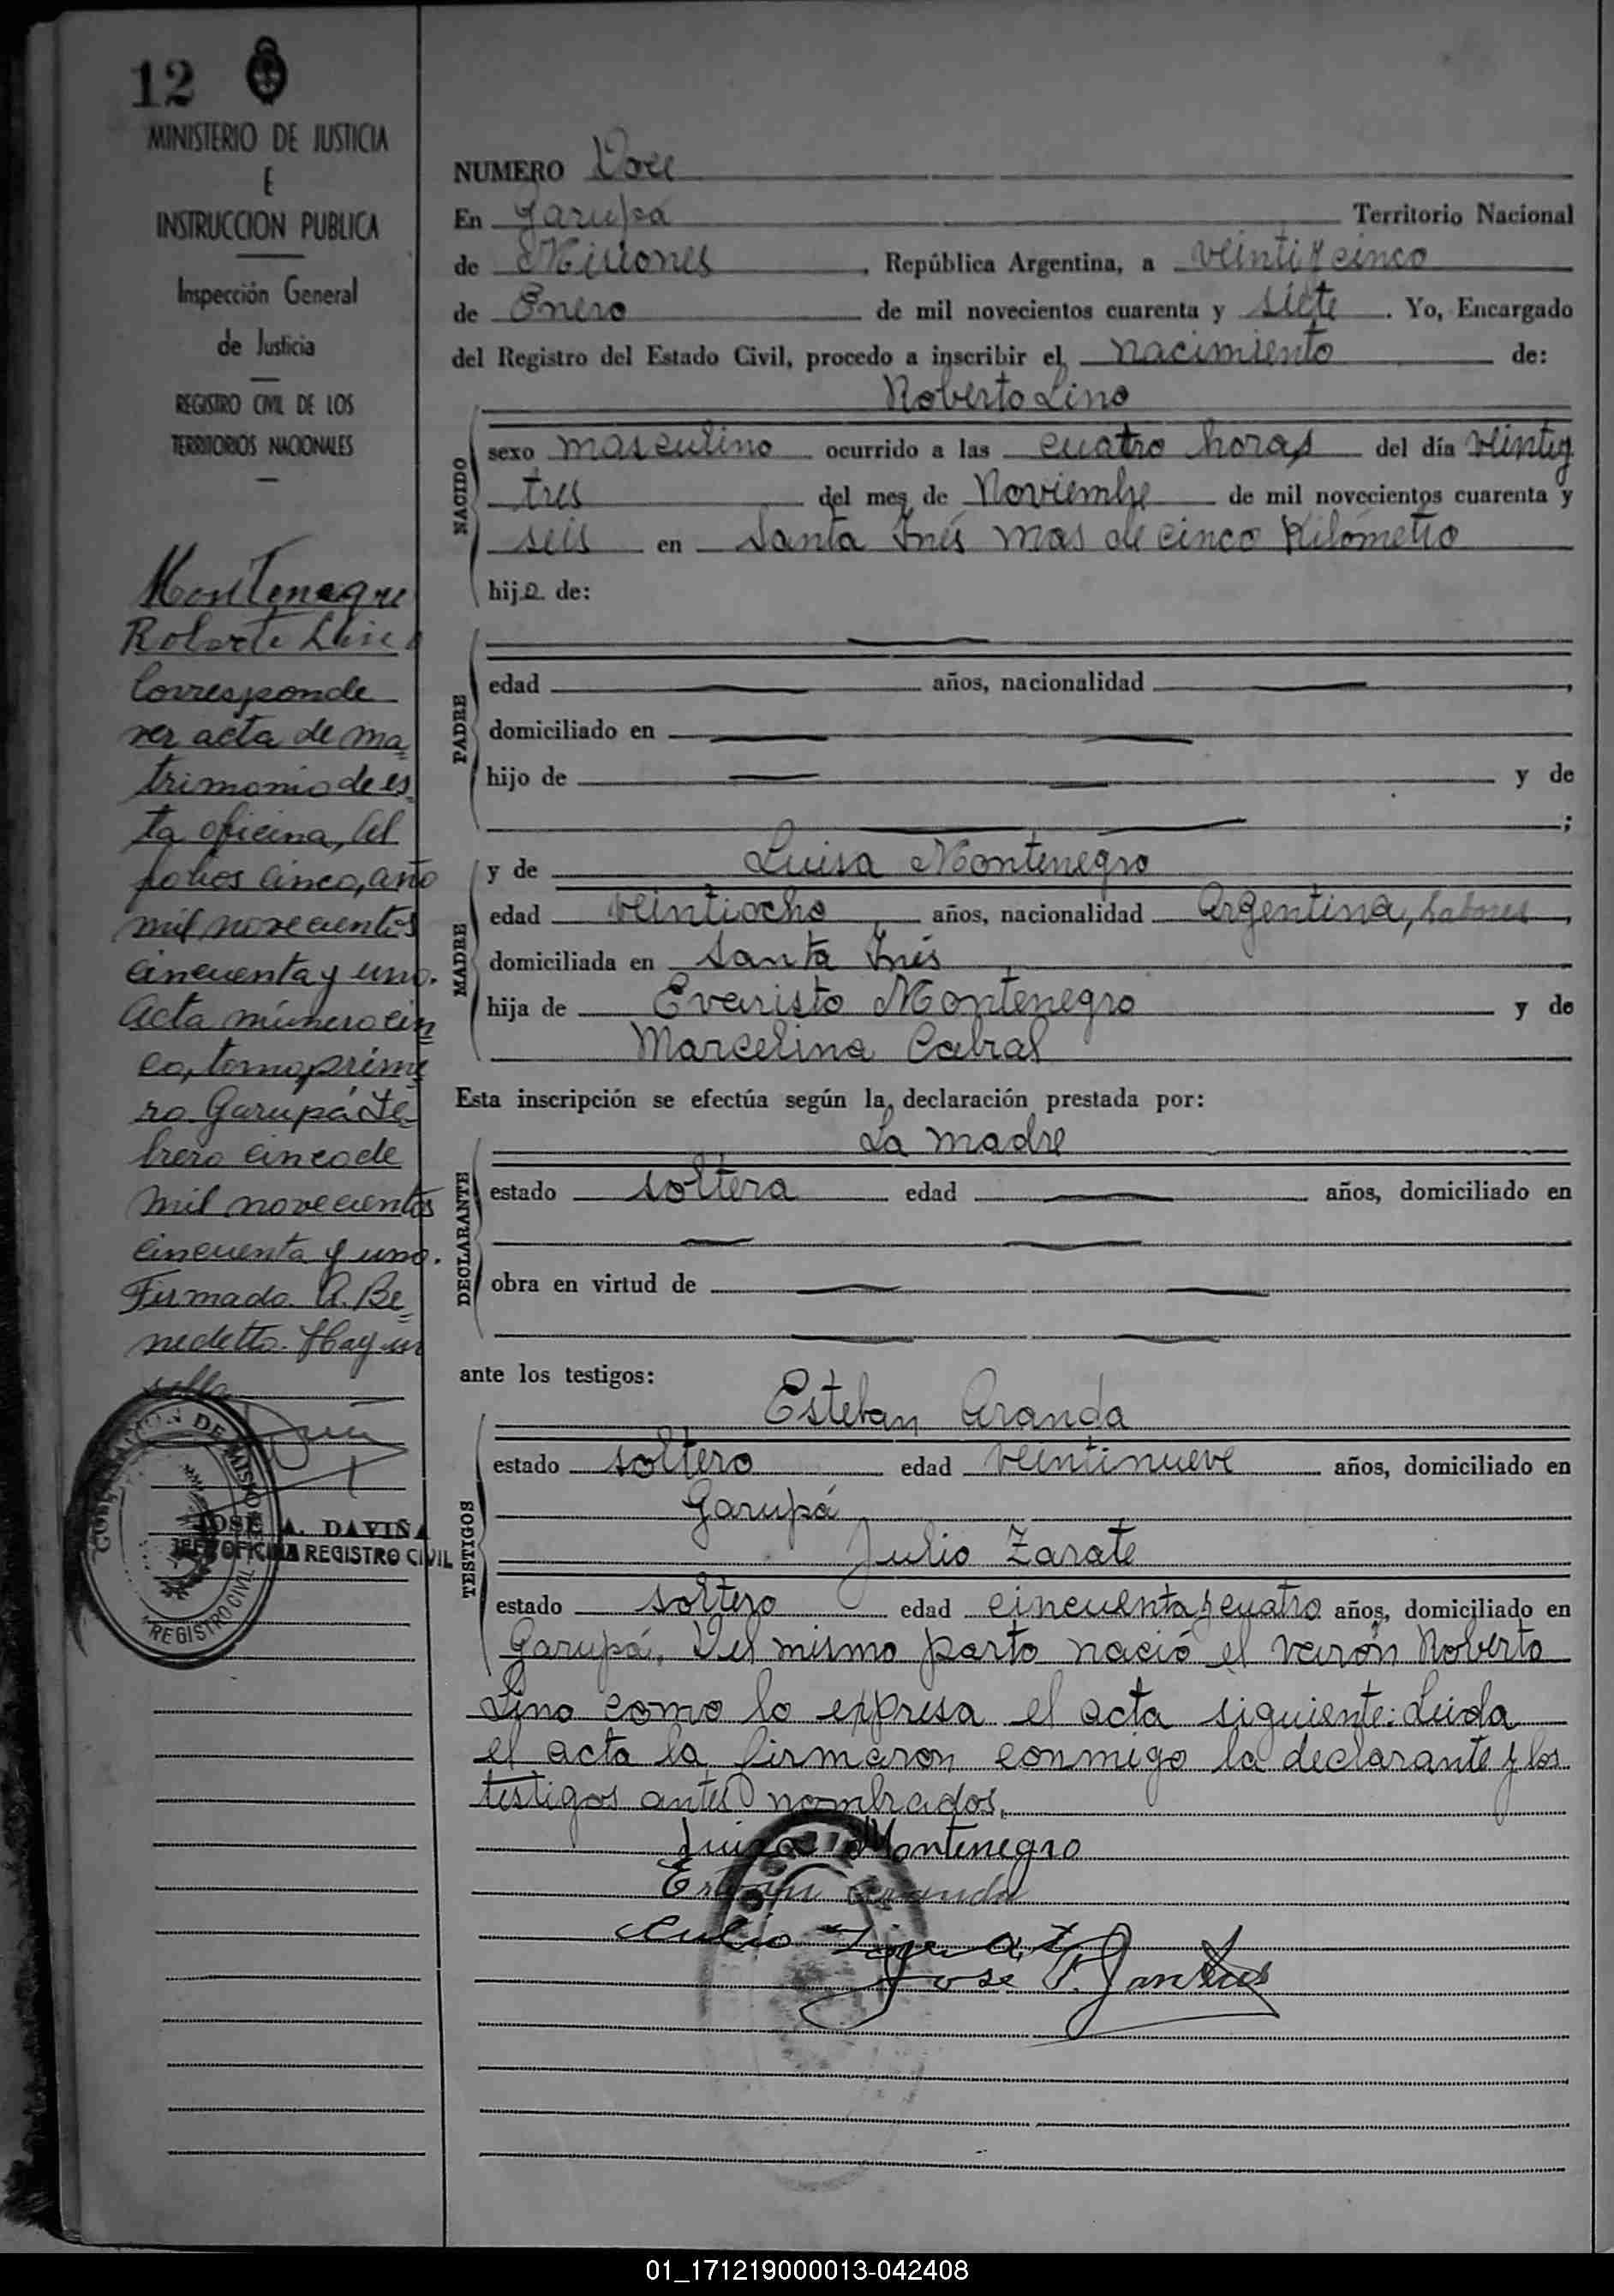 12
MINISTERIO DE JUSTICIA
E
INSTRUCCION PUBLICA
Inspección General
de Justicia
REGISTRO CIVIL DE LOS
TERRITORIOS NACIONALES
Montenegro
Roberto Lino
Corresponde
ver acta de ma
trimonio de es
ta oficina, al
folios cinco, año
mil novecientos
cincuenta y uno.
Acta número cin
co, tomo prime
ro Garupá Fe
brero cinco de
mil novecientos
cincuenta y uno.
Firmado. A. Be
nedetto. Hay un
sello
GOBERNACION DE MISIONES
REGISTRO CIVIL
JOSE A. DAVIÑA
JEFE OFICINA REGISTRO CIVIL
NUMERO Doce
En Garupá Territorio Nacional
de Misiones, República Argentina, a veinti y cinco
de Enero de mil novecientos cuarenta y siete. Yo, Encargado
del Registro del Estado Civil, procedo a inscribir el nacimiento de:
Roberto Lino
NACIDO
sexo masculino ocurrido a las cuatro horas del día veintiy
tres del mes de Noviembre de mil novecientos cuarenta y
seis en Santa Inés mas de cinco Kilómetro
hijo de:
PADRE
edad años, nacionalidad ,
domiciliado en
hijo de y de
;
MADRE
y de Luisa Montenegro
edad veintiocho años, nacionalidad Argentina, labores,
domiciliada en Santa Inés
hija de Evaristo Montenegro y de
Marcelina Cabral
Esta inscripción se efectúa según la declaración prestada por:
La madre
DECLARANTE
estado soltera edad años, domiciliado en
obra en virtud de
ante los testigos:
Esteban Aranda
TESTIGOS
estado soltero edad veintinueve años, domiciliado en
Garupá
Julio Zarate
estado soltero edad cincuenta y cuatro años, domiciliado en
Garupá. Del mismo parto nació el varón Roberto
Lino como lo expresa el acta siguiente: Leida
el acta la firmaron conmigo la declarante y los
testigos antes nombrados.
Luisa Montenegro
Esteban Aranda
Julio Zarate
José
01_171219000013-042408